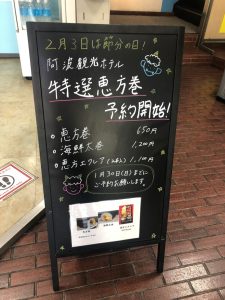 2月3日は節分の日!
阿波観光ホテル
特選恵方巻
予約開始!
恵方巻 650円
海鮮太巻 1,200円
恵方エクレア(2本入) 1,100円
1月30日(日)までに
ご予約お願いします。